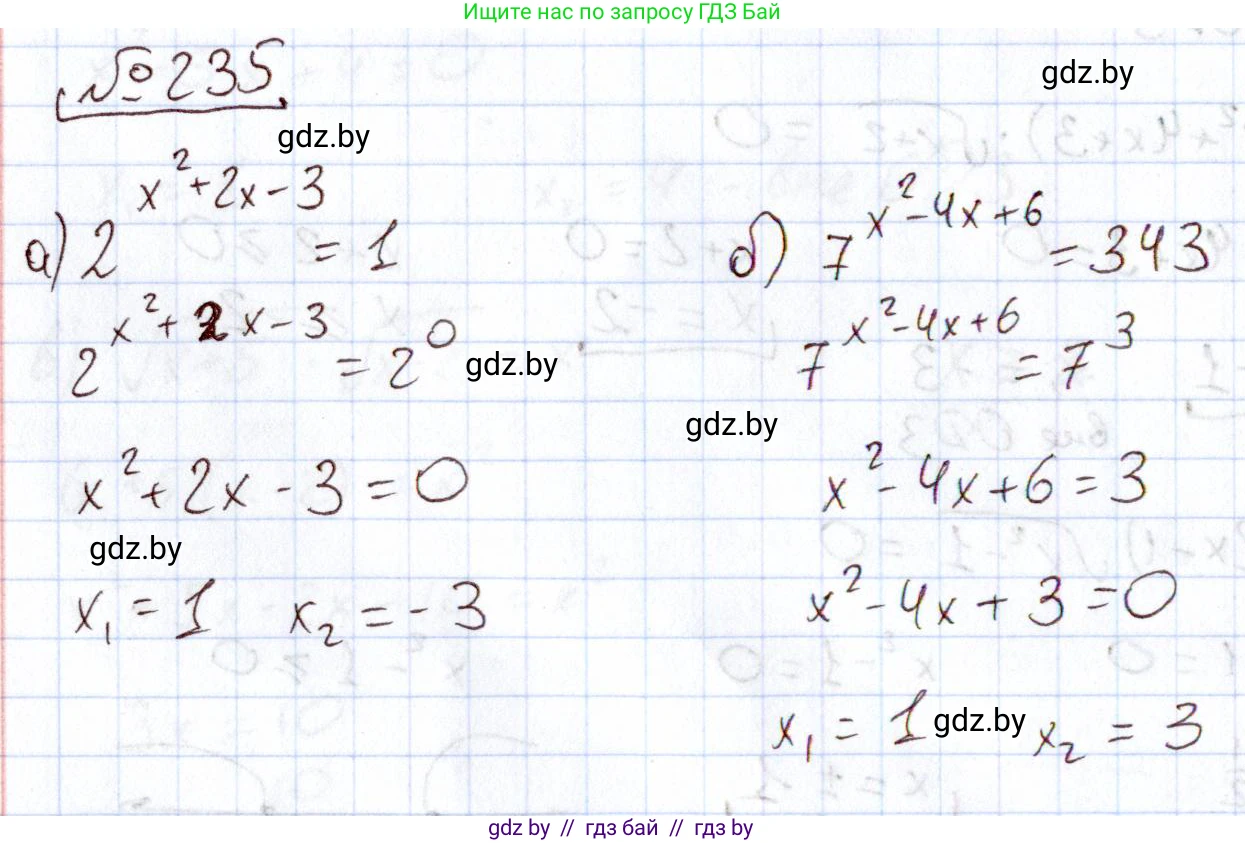 Ищите нас по запросу ГДЗ Бай
№235
gdz.by
gdz.by
а) 2^{x²+2x-3} = 1
2^{x²+2x-3} = 2^0
gdz.by
x²+2x-3=0
gdz.by
x₁=1 x₂=-3
б) 7^{x²-4x+6} = 343
7^{x²-4x+6} = 7³
gdz.by
x²-4x+6=3
x²-4x+3=0
x₁=1 gdz.by x₂=3
gdz by // гдз бай // гдз by